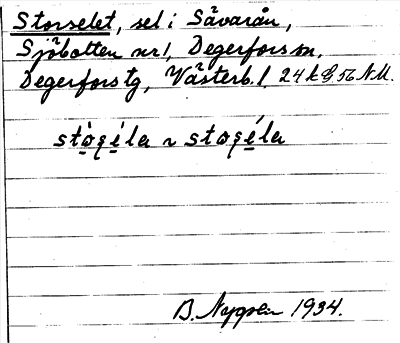 Storselet, sel i Sävarån,
Sjöbotten nr 1, Degerfors sn,
Degerfors tg, Västerb. l. 24k G. 56 N.M.
stò̱ʂé̱la ~ stoʂé̱la
B. 1934.